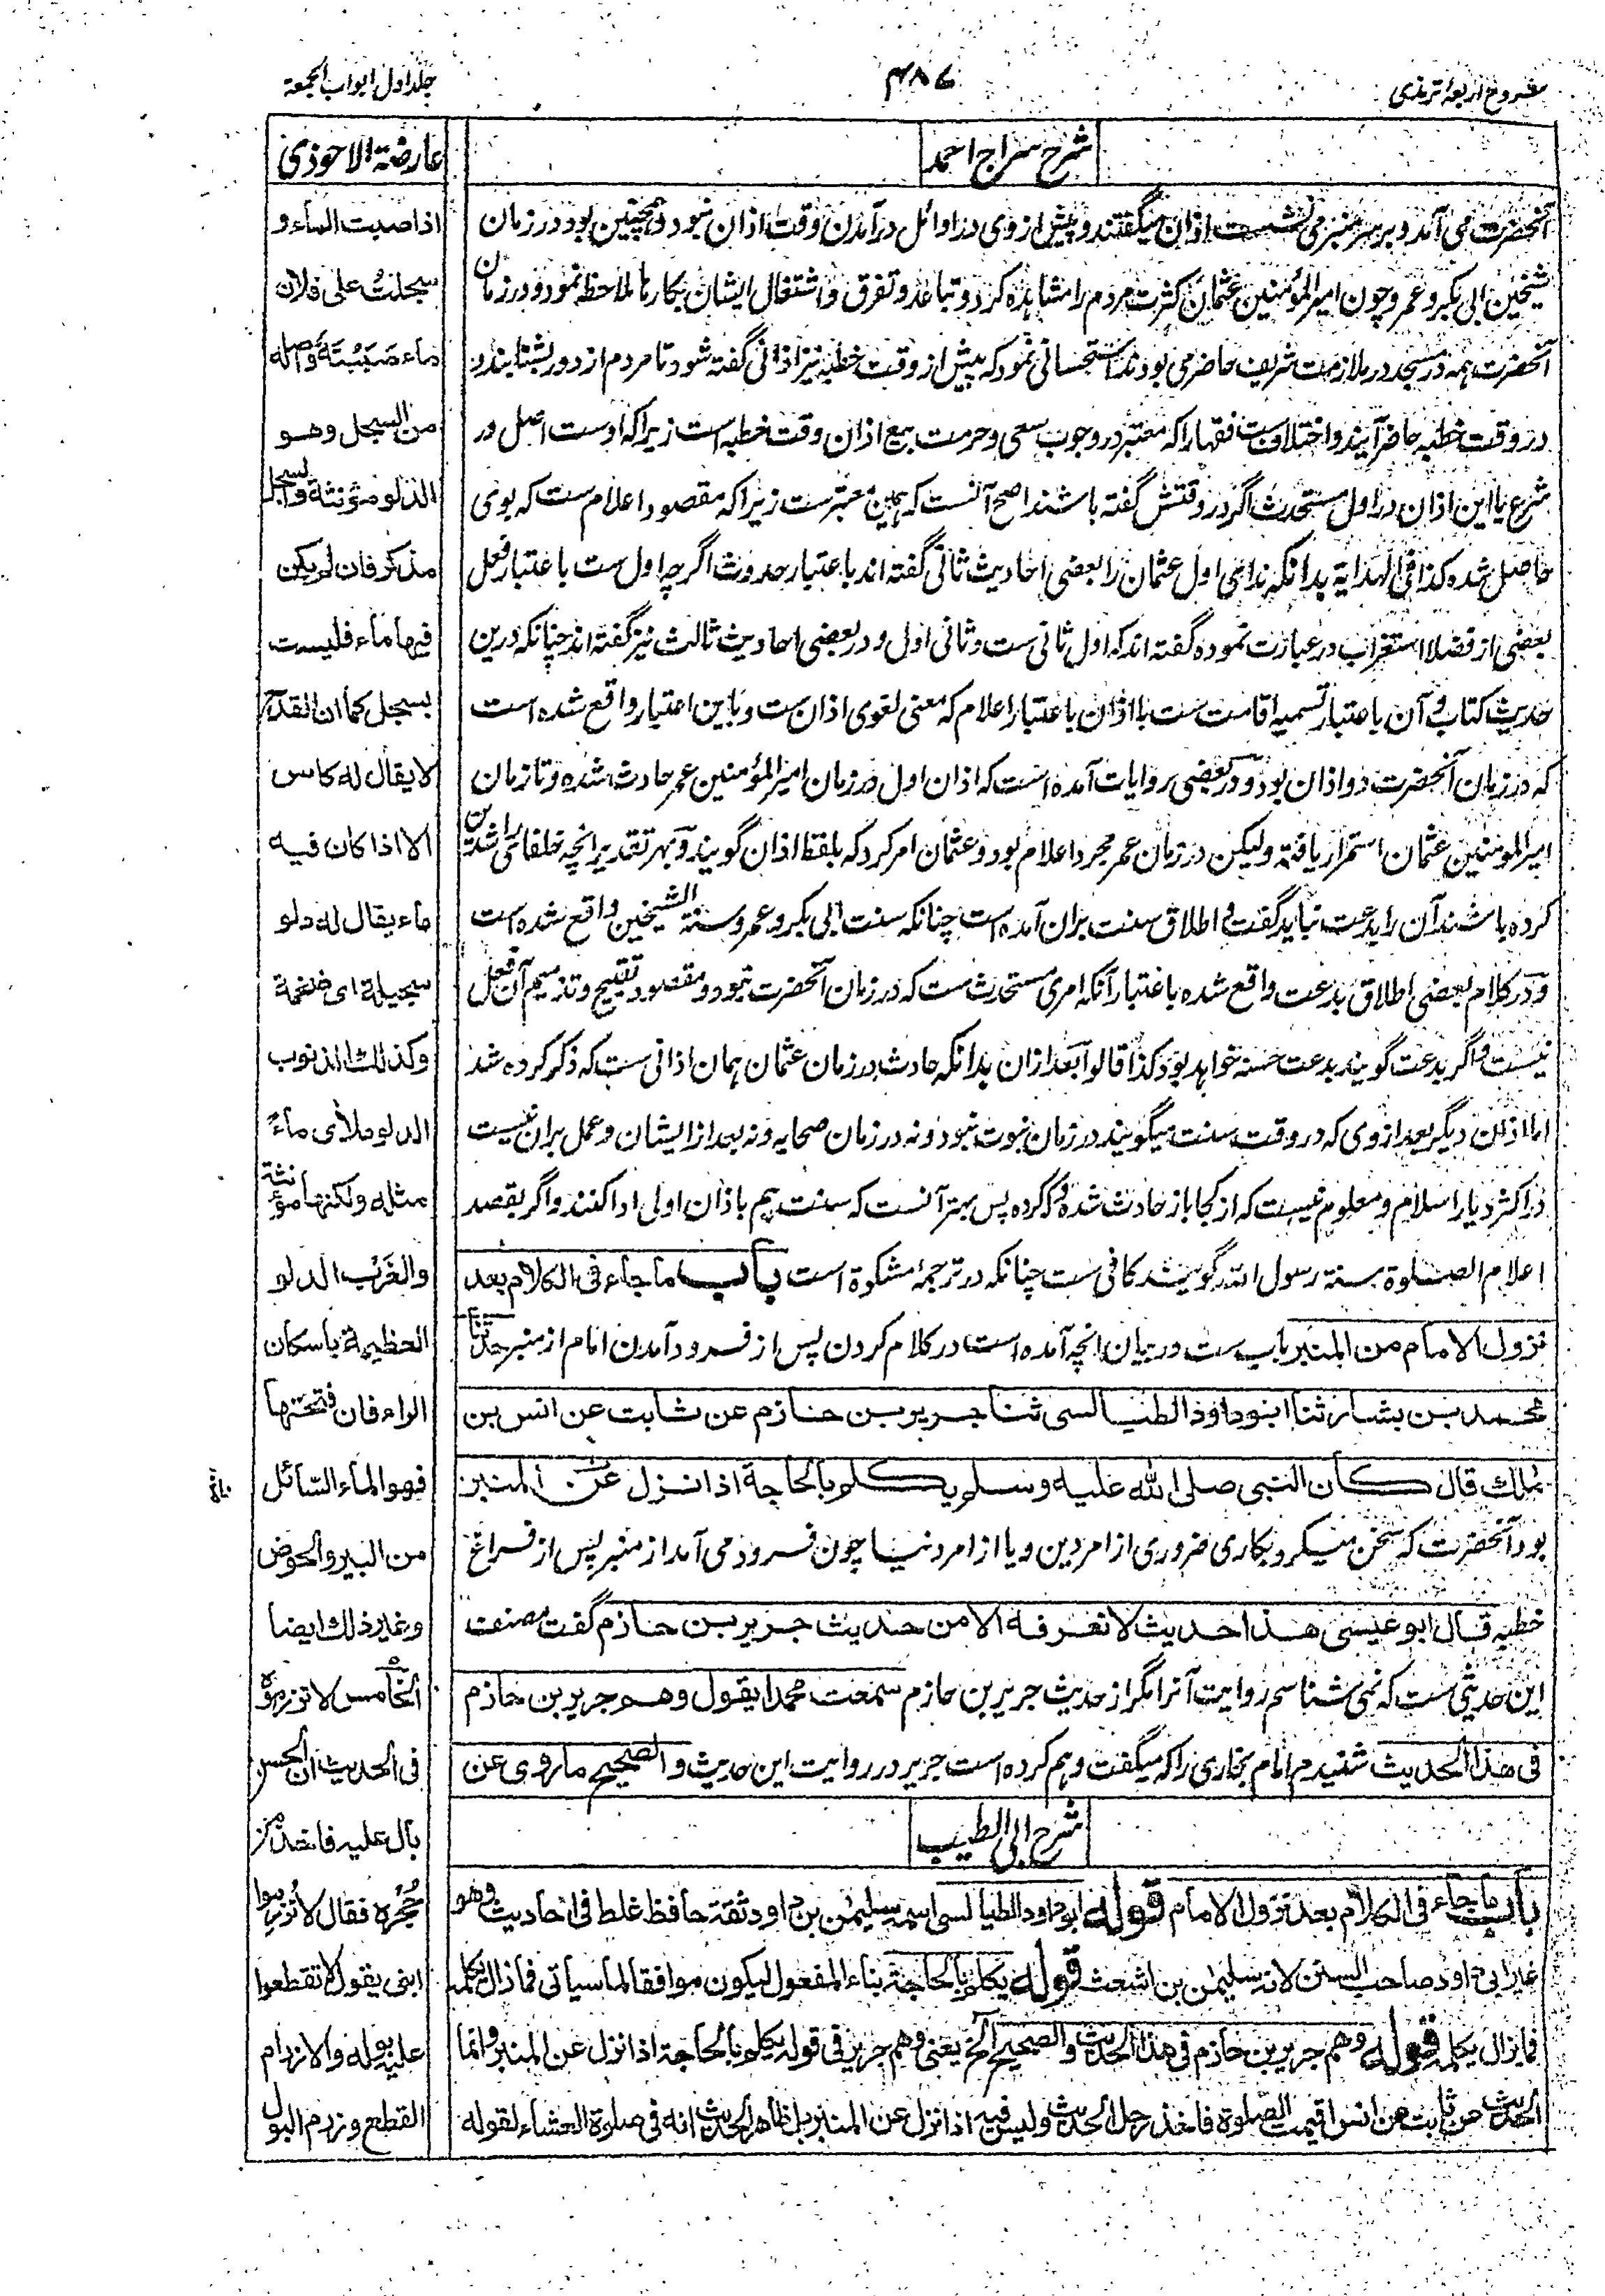 شروح اربعۂ ترمذی
۴۸۷
جلد اول ابواب الجمعة
شرح سراج احمد
آنحضرت می آمد و بر سر منبر می نشست اذان میگفتند و پیش از وی در اوائل درآمدن وقت اذان نبود و همچنین بود در زمان
شیخین ابی بکر و عمر و چون امیر المؤمنین عثمان کثرت مردم را مشاهده کرد و تباعد و تفرق و اشتغال ایشان بکارها ملاحظه نمود و در زمان
آنحضرت همه در مسجد در ملازمت شریف حاضر می بودند استحسانی نمود که پیش از وقت خطبه نیز اذانی گفته شود تا مردم از دور بشتابند و
در وقت خطبه حاضر آیند و اختلاف ست فقها را که معتبر در وجوب سعی و حرمت بیع اذان وقت خطبه است زیرا که اوست اصل در
شرع یا این اذان در اول مستحدث اگر در وقتش گفته باشند اصح آنست که همین معتبر ست زیرا که مقصود اعلام ست که بوی
حاصل شده کذا فی الهدایة بدانکه ندای اول عثمان را بعضی احادیث ثانی گفته اند باعتبار حدوث اگر چه اول ست باعتبار فعل
بعضی از فضلا استغراب در عبارت نموده گفته اند که اول ثانی ست و ثانی اول و در بعضی احادیث ثالث نیز گفته اند چنانکه درین
حدیث کتاب و آن باعتبار تسمیه اقامت ست باذان باعتبار اعلام که معنی لغوی اذان ست و باین اعتبار واقع شده است
که در زمان آنحضرت دو اذان بود و در بعضی روایات آمده است که اذان اول در زمان امیر المؤمنین عمر حادث شده و تا زمان
امیر المومنین عثمان استمرار یافته و لیکن در زمان عمر مجرد اعلام بود و عثمان امر کرد که بلفظ اذان گویند و بهر تقدیر انچه خلفای راشدین
کرده باشند آن را بدعت نباید گفت و اطلاق سنت بران آمده است چنانکه سنت ابی بکر و عمر و سنة الشیخین واقع شده است
و در کلام بعضی اطلاق بدعت واقع شده باعتبار آنکه امری مستحدث ست که در زمان آنحضرت نبود و مقصود تقبیح و تذمیم آن فعل
نیست و اگر بدعت گویند بدعت حسنه خواهد بود کذا قالوا بعد ازان بدانکه حادث در زمان عثمان همان اذانی ست که ذکر کرده شد
اما اذان دیگر بعد از وی که در وقت سنت میگویند در زمان نبوت نبود و نه در زمان صحابه و نه بعد از ایشان و عمل بران نیست
در اکثر دیار اسلام و معلوم نیست که از کجا باز حادث شده و که کرده پس بهتر آنست که سنت هم باذان اولی ادا کنند و اگر بقصد
اعلام الصلوة سنة رسول الله گویند کافی ست چنانکه در ترجمۂ مشکوة است باب ما جاء فی الکلام بعد
نزول الامام من المنبر باب ست در بیان انچه آمده است در کلام کردن پس از فرود آمدن امام از منبر حدثنا
محمد بن بشار ثنا ابو داود الطیالسی ثنا جریر بن حازم عن ثابت عن انس بن
مالك قال كان النبی صلی الله علیه وسلم یکلم بالحاجة اذا نزل عن المنبر
بود آنحضرت که سخن میکرد بکاری ضروری از امر دین و یا از امر دنیا چون فرود می آمد از منبر پس از فراغ
خطبه قال ابو عیسی هذا حدیث لا نعرفه الا من حدیث جریر بن حازم گفت مصنف
این حدیثی ست که نمی شناسم روایت آنرا مگر از حدیث جریر بن حازم سمعت محمدا یقول وهم جریر بن حازم
فی هذا الحدیث شنیدم امام بخاری را که میگفت وهم کرده است جریر در روایت این حدیث و الصحیح ما روی عن
شرح ابی الطیب
باب ما جاء فی الکلام بعد نزول الامام قوله ابو داود الطیالسی اسمه سلیمن بن داود ثقة حافظ غلط فی احادیث وهو
غیر ابی داود صاحب السنن لانه سلیمن بن اشعث قوله یکلم بالحاجة بناء المفعول لیکون موافقا لما سیاتی فما زال یکلمه
فما یزال یکلمه قوله وهم جریر بن حازم فی هذا الحدیث والصحیح الخ یعنی وهم جریر فی قوله یکلم بالحاجة اذا نزل عن المنبر وانما
الحدیث عن ثابت عن انس اقیمت الصلوة فاخذ رجل الحدیث ولیس فیه اذا نزل عن المنبر بل ظاهر الحدیث انه فی صلوة العشاء لقوله
عارضة الاحوذی
اذا صببت الماء و
سجلت علی فلان
ماء صببته واصله
من السجل وهو
الدلو مؤنثة والسجل
مذکر فان لم یکن
فیها ماء فلیست
بسجل کما ان القدح
لا یقال له کاس
الا اذا کان فیه
ماء یقال له دلو
سجیلة ای ضخمة
وکذلك الذنوب
الدلو ملأی ماء
مثله ولکنها مؤنثة
والغرب الدلو
العظیمة باسکان
الراء فان فتحتها
فهو الماء السائل
من البیر والحوض
وغیر ذلك ایضا
الخامس لا تزرموه
فی الحدیث ان الحسن
بال علیه فاخذ من
حجره فقال لا تزرموا
ابنی یقول لا تقطعوا
علیه بوله والازرام
القطع وزرم البول